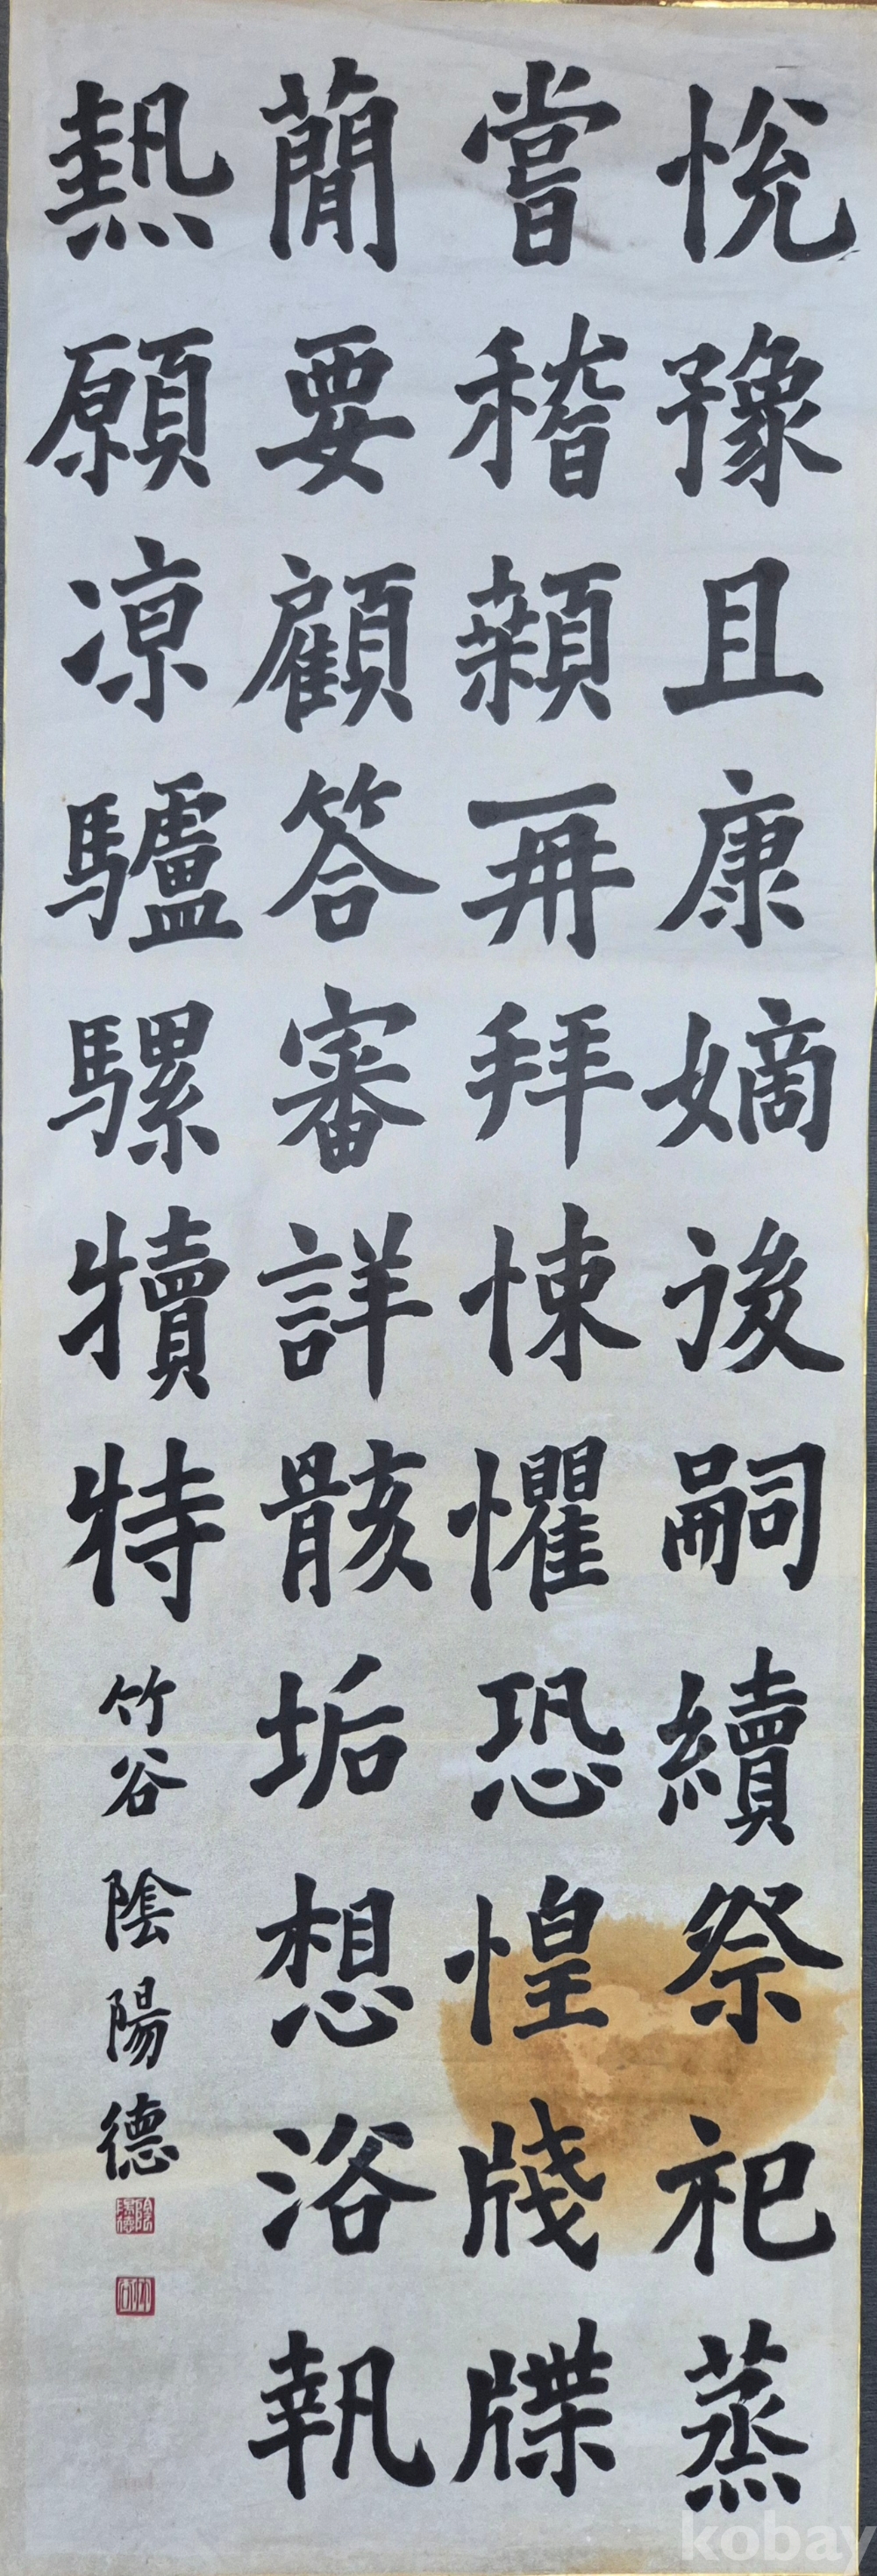 悅豫且康嫡後嗣續祭祀蒸
嘗稽顙再拜悚懼恐惶牋牒
簡要顧答審詳骸垢想浴執
熱願凉驢騾犢特
竹谷 陰陽德
kobay